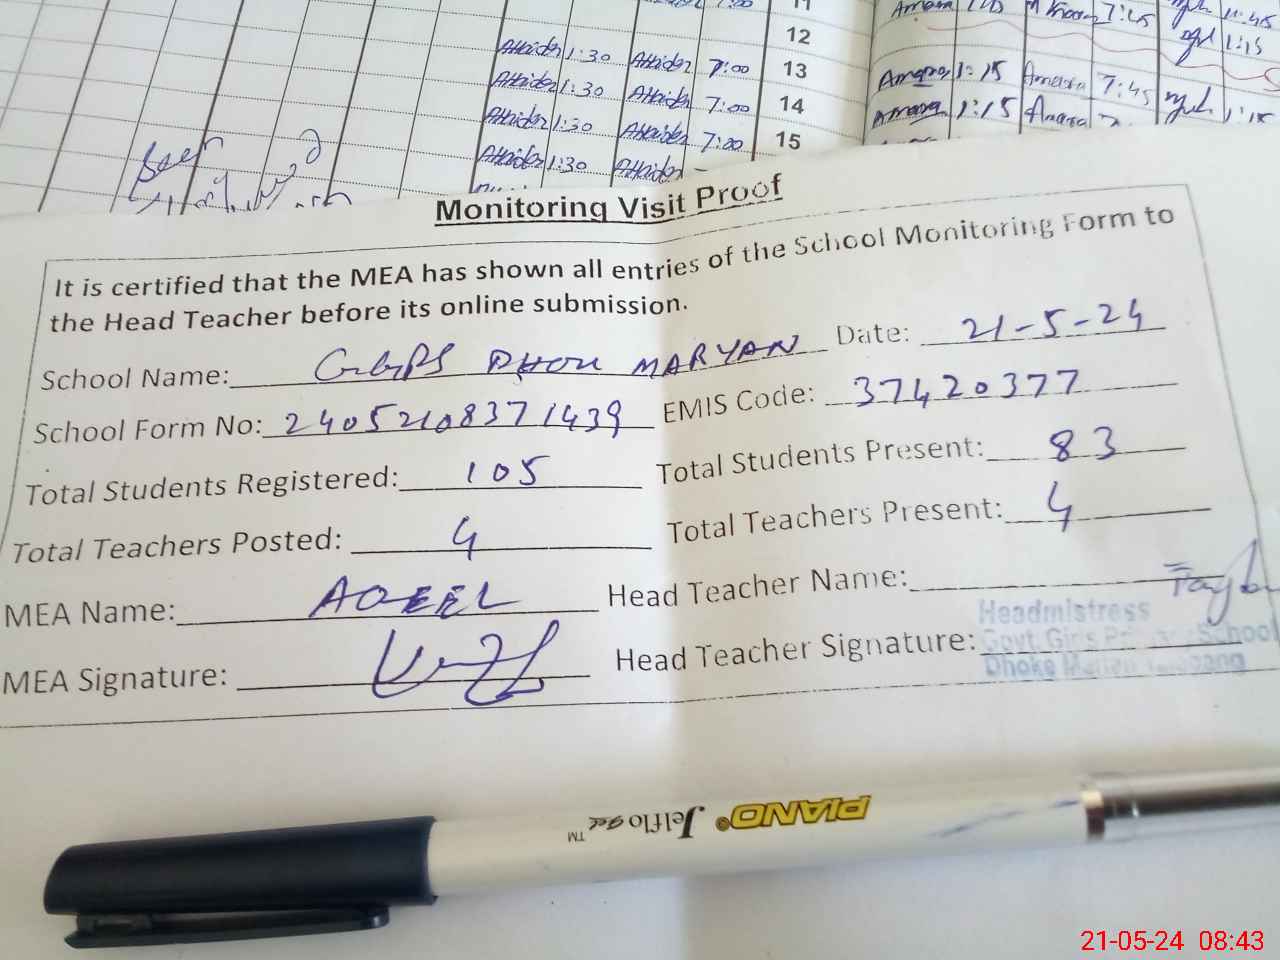 11
12
13
14
15
Attaidos 1:30 Attaidos 7:00
Attaidos 1:30 Attaidos 7:00
Attaidos 1:30 Attaidos 7:00
Attaidos 1:30 Attaidos
Amara 7:45 11:45
1:15
Amara 1:15 Amara 7:45
Amara 1:15 Amara 1:15
Seen
Monitoring Visit Proof
It is certified that the MEA has shown all entries of the School Monitoring Form to
the Head Teacher before its online submission.
School Name: GGPS DHOK MARYAN Date: 21-5-24
School Form No: 24052108371439 EMIS Code: 37420377
Total Students Registered: 105 Total Students Present: 83
Total Teachers Posted: 4 Total Teachers Present: 4
MEA Name: AQEEL Head Teacher Name:
Headmistress
MEA Signature: Head Teacher Signature: Govt. Girls Primary School
PIANO Jelflo gel ™
21-05-24 08:43